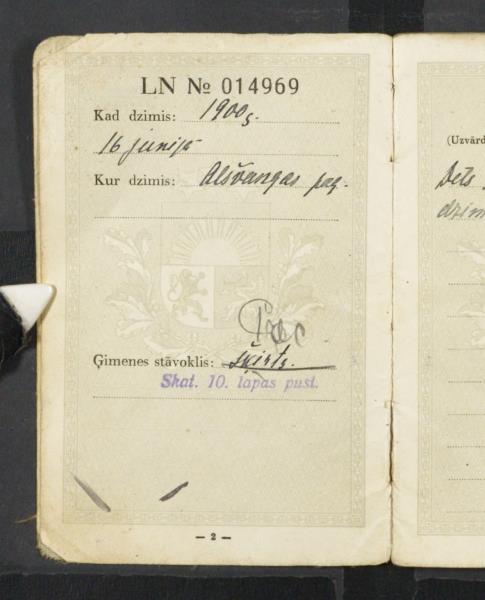 LN № 014969
Kad dzimis: 1900g.
16 jūnijā
Kur dzimis: Alšvangas pag.
Ģimenes stāvoklis: šķirts.
Skat. 10. lapas pusi.
— 2 —
(Uzvārd
Dēls
dzim